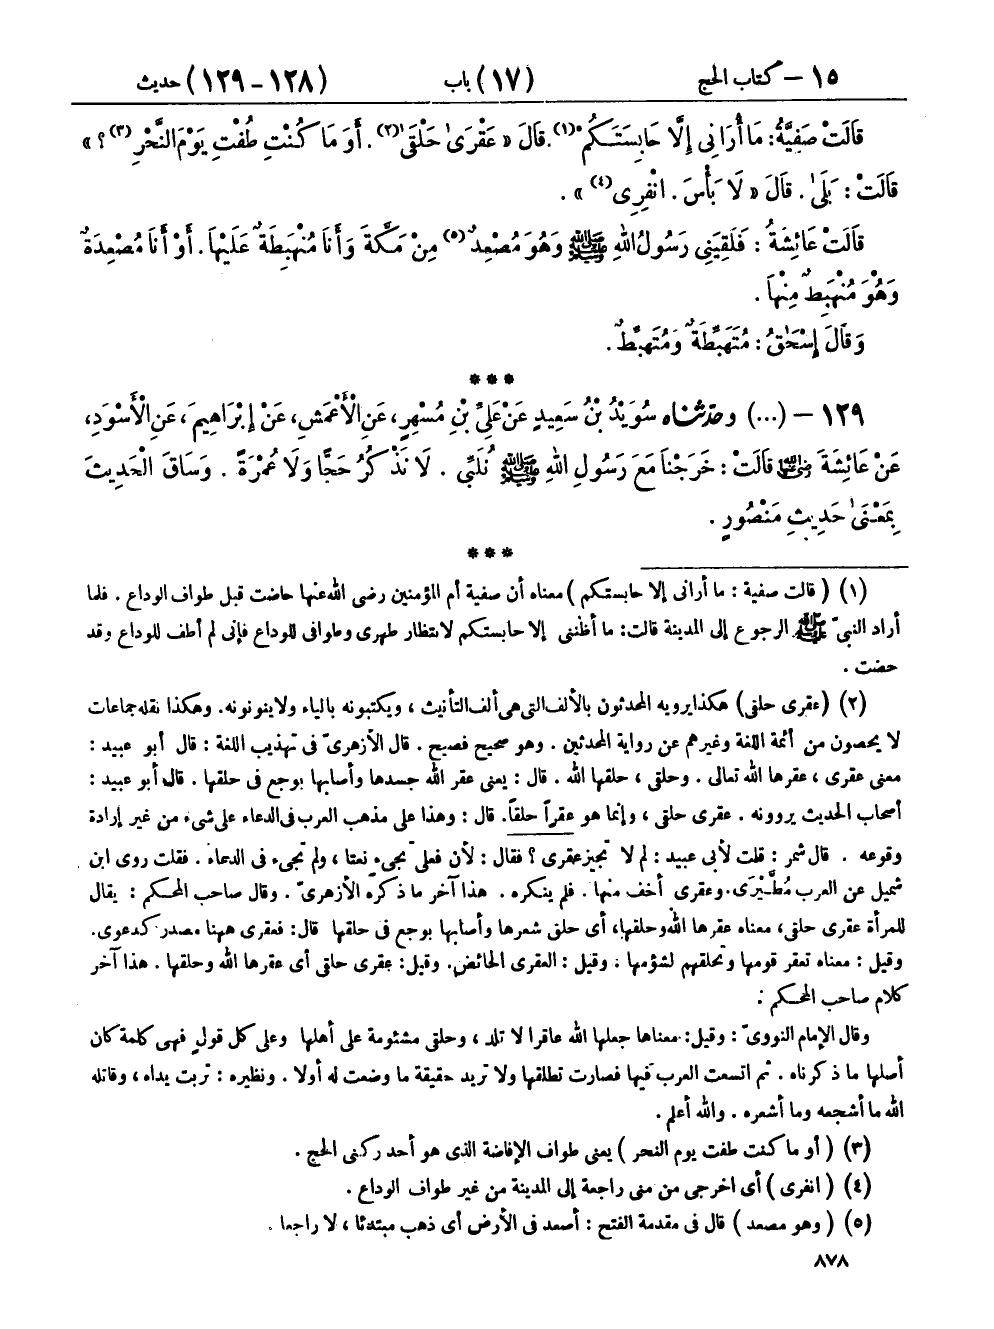 ١٥ – كتاب الحج (١٧) باب (١٢٨ – ١٢٩) حديث
قَالَتْ صَفِيَّةُ: مَا أُرَانِى إِلَّا حَابِسَتَكُمْ(١). قَالَ « عَقْرَىٰ حَلْقَىٰ(٢). أَوَ مَا كُنْتِ طُفْتِ يَوْمَ النَّحْرِ(٣) ؟ »
قَالَتْ: بَلَىٰ. قَالَ « لَا بَأْسَ. انْفِرِى(٤) ».
قَالَتْ عَائِشَةُ: فَلَقِيَنِى رَسُولُ اللهِ ﷺ وَهُوَ مُصْعِدٌ(٥) مِنْ مَكَّةَ وَأَنَا مُنْهَبِطَةٌ عَلَيْهَا. أَوْ أَنَا مُصْعِدَةٌ
وَهُوَ مُنْهَبِطٌ مِنْهَا.
وَقَالَ إِسْحَاقُ: مُتَهَبِّطَةٌ وَمُتَهَبِّطٌ.
***
١٢٩ – (...) وحدثناه سُوَيْدُ بْنُ سَعِيدٍ عَنْ عَلِيِّ بْنِ مُسْهِرٍ، عَنِ الْأَعْمَشِ، عَنْ إِبْرَاهِيمَ، عَنِ الْأَسْوَدِ،
عَنْ عَائِشَةَ رضي الله عنها قَالَتْ: خَرَجْنَا مَعَ رَسُولِ اللهِ ﷺ نُلَبِّى. لَا نَذْكُرُ حَجًّا وَلَا عُمْرَةً. وَسَاقَ الْحَدِيثَ
بِمَعْنَىٰ حَدِيثِ مَنْصُورٍ.
***
(١) ( قالت صفية : ما أرانى إلا حابستكم ) معناه أن صفية أم المؤمنين رضى الله عنها حاضت قبل طواف الوداع . فلما
أراد النبىّ ﷺ الرجوع إلى المدينة قالت: ما أظننى إلا حابستكم لانتظار طهرى وطوافى للوداع فإنى لم أطف للوداع وقد
حضت .
(٢) (عقرى حلقى) هكذا يرويه المحدثون بالألف التى هى ألف التأنيث ، ويكتبونه بالياء ولا ينونونه. وهكذا نقله جماعات
لا يحصون من أئمة اللغة وغيرهم عن رواية المحدثين . وهو صحيح فصيح . قال الأزهرىّ فى تهذيب اللغة : قال أبو عبيد :
معنى عقرى ، عقرها الله تعالى . وحلقى ، حلقها الله . قال : يعنى عقر الله جسدها وأصابها بوجع فى حلقها . قال أبو عبيد :
أصحاب الحديث يروونه . عقرى حلقى ، وإنما هو عقراً حلقاً. قال : وهذا على مذهب العرب فى الدعاء على شىء من غير إرادة
وقوعه . قال شمر : قلت لأبى عبيد : لم لا تجيز عقرى ؟ فقال : لأن فعلى تجىء نعتا ، ولم تجىء فى الدعاء . فقلت روى ابن
شميل عن العرب مُطَّيْرَى. وعقرى أخف منها . فلم ينكره . هذا آخر ما ذكره الأزهرىّ . وقال صاحب المحكم : يقال
للمرأة عقرى حلقى، معناه عقرها الله وحلقها، أى حلق شعرها وأصابها بوجع فى حلقها قال: فعقرى ههنا مصدر كدعوى.
وقيل : معناه تعقر قومها وتحلقهم لشؤمها . وقيل : العقرى الحائض. وقيل: عقرى حلقى أى عقرها الله وحلقها . هذا آخر
كلام صاحب المحكم .
وقال الإمام النووىّ : وقيل: معناها جعلها الله عاقرا لا تلد ، وحلقى مشئومة على أهلها وعلى كل قولٍ فهى كلمة كان
أصلها ما ذكرناه . ثم اتسعت العرب فيها فصارت تطلقها ولا تريد حقيقة ما وضعت له أولا . ونظيره : تربت يداه ، وقاتله
الله ما أشجعه وما أشعره . والله أعلم .
(٣) ( أو ما كنت طفت يوم النحر ) يعنى طواف الإفاضة الذى هو أحد ركنى الحج .
(٤) ( انفرى ) أى اخرجى من منى راجعة إلى المدينة من غير طواف الوداع .
(٥) ( وهو مصعد ) قال فى مقدمة الفتح : أصعد فى الأرض أى ذهب مبتدئا ، لا راجعا .
٨٧٨